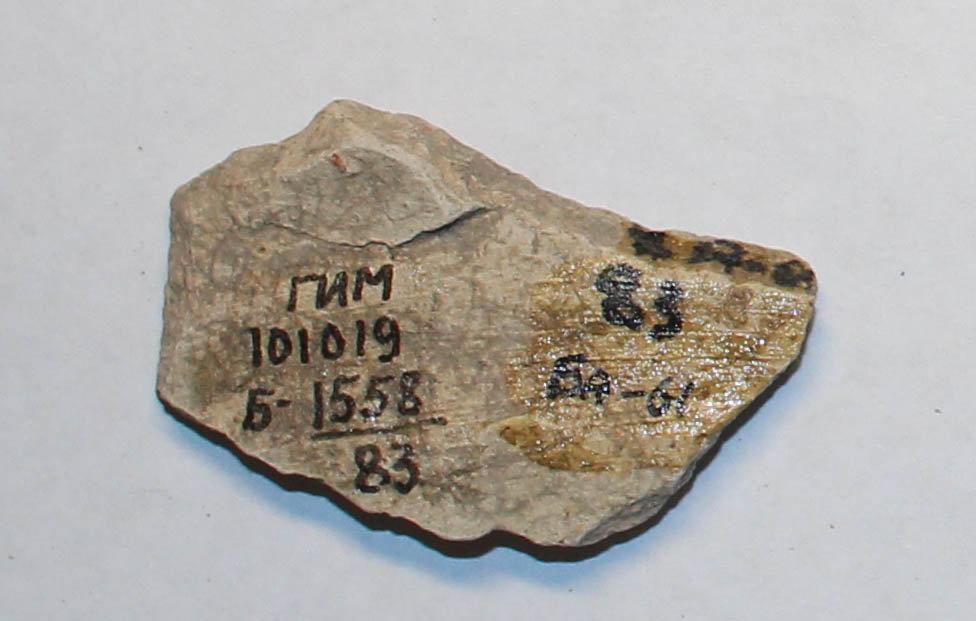 ГИМ
101019
Б-1558
83
83
БА-61